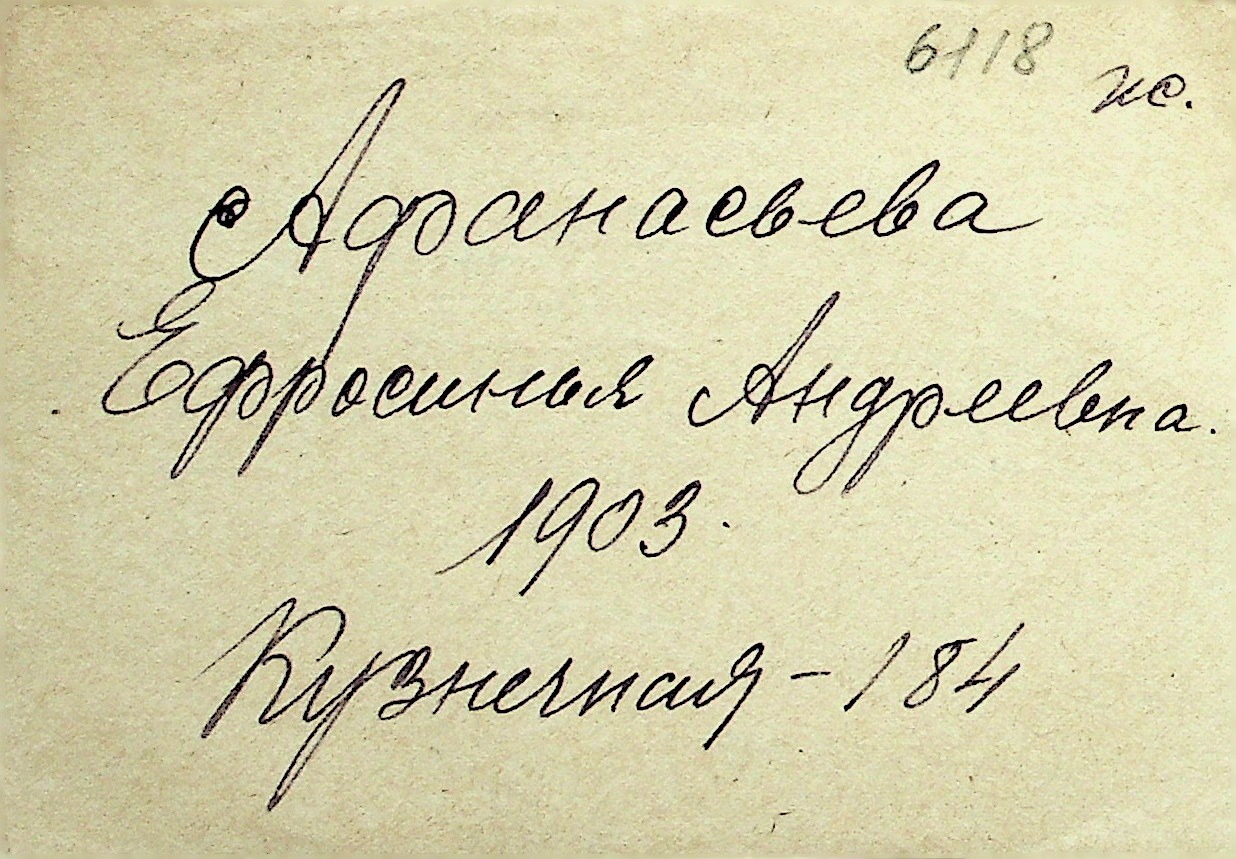 6118 ж.
Афанасьева
Ефросинья Андреевна.
1903.
Кузнечная - 184